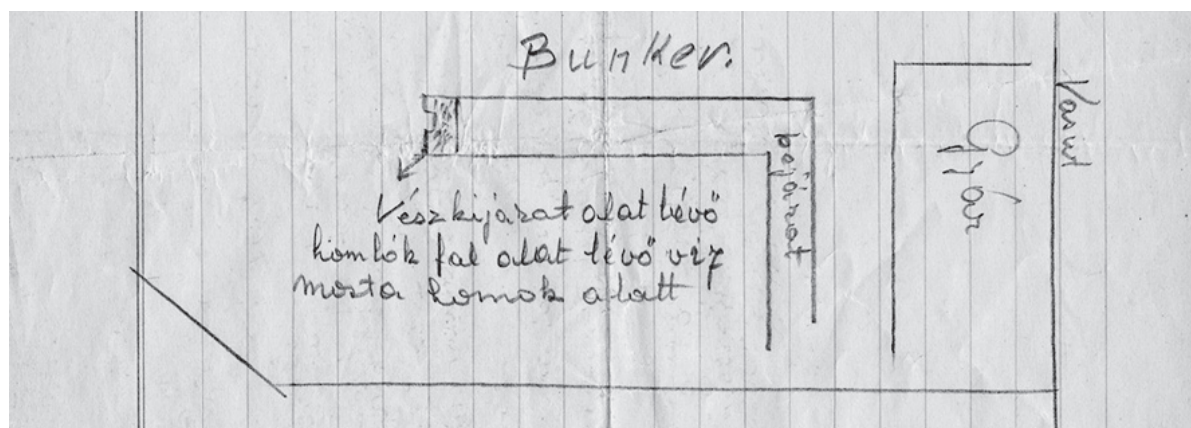 Bunker.
Vészkijárat alat lévő
homlók fal alat lévő víz
mosta homok alatt
bejárat
Gyár
Vasut